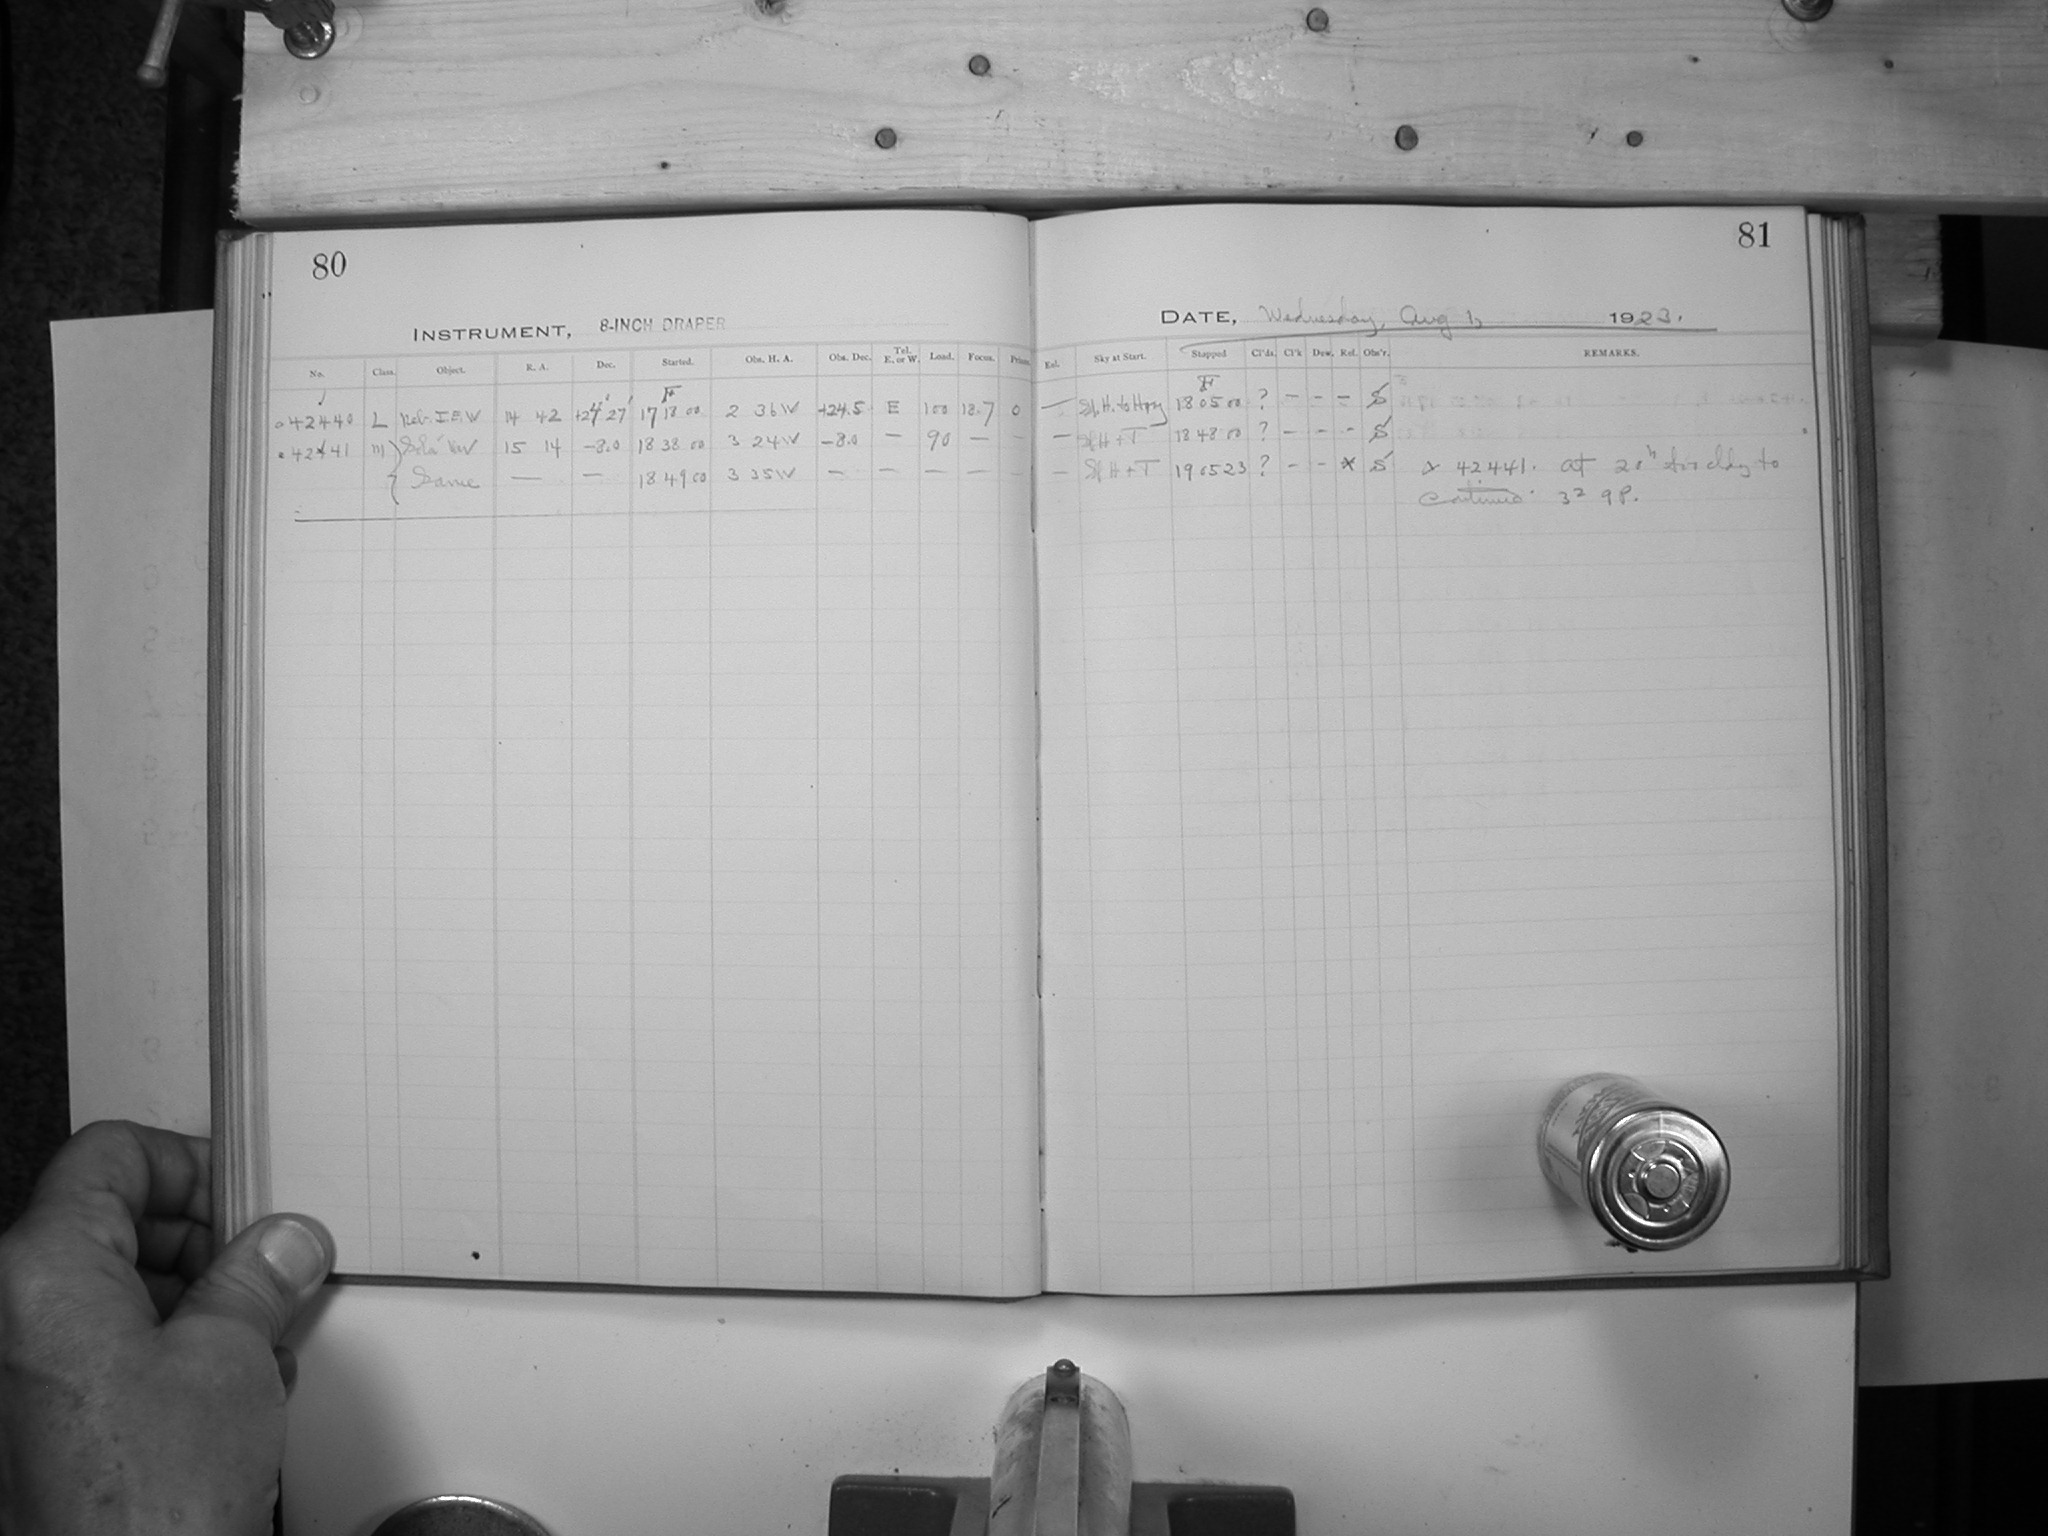 80
INSTRUMENT, 8-INCH DRAPER
No. Class. Object. R. A. Dec. Started. Obs. H. A. Obs. Dec. Tel. E. or W. Load. Focus. Prism.
42440 L Neb. I.E.W 14 42 +24 27 17 18 00 2 36 W +24.5 E 100 18.7 0
42441 M 15 14 -8.0 18 38 00 3 24 W -8.0 — 90 — —
Same — — 18 49 00 3 35 W — — — — —
81
DATE, Wednesday, Aug 1, 1923.
Rel. Sky at Start. Stopped Cl'ds. Cl'k Dew. Rel. Obs'r. REMARKS.
— Sl. H. to Hazy 18 05 00 ? – – – S
— Sl H + T 18 48 00 ? – – – S
— Sl H + T 19 05 23 ? – – * S * 42441. At 20h too cldy to
continue. 32 9 P.